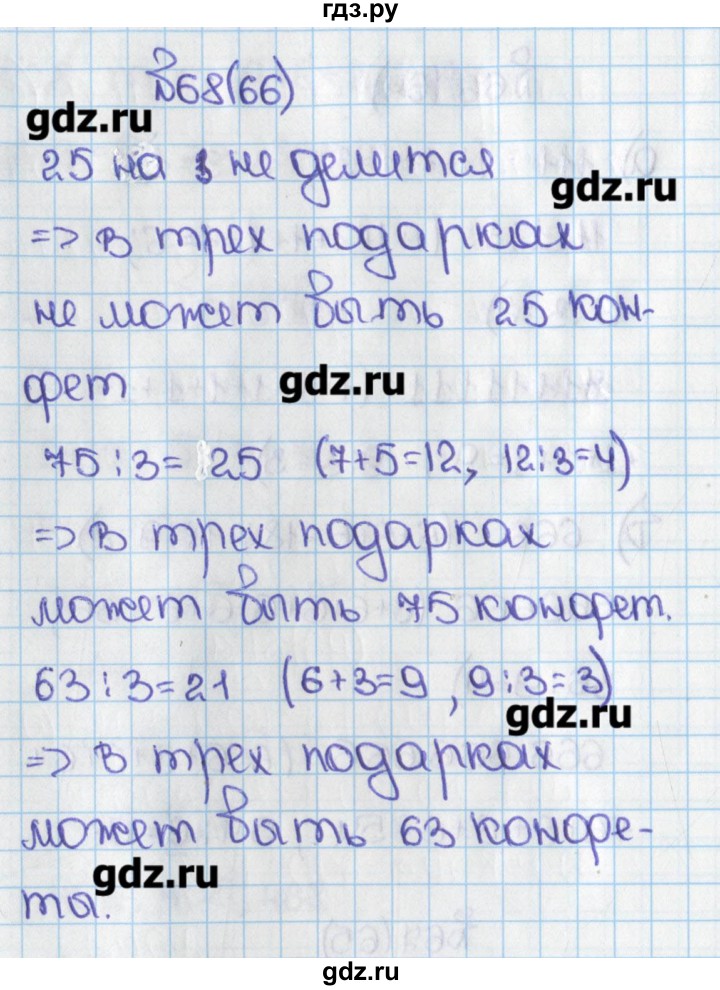 гдз.ру
№68(66)
gdz.ru
25 на 3 не делится
gdz.ru
=> в трех подарках
не может быть 25 кон-
фет
gdz.ru
75 : 3 = 25 (7+5=12, 12:3=4)
=> в трех подарках
может быть 75 конфет.
63 : 3 = 21 (6+3=9, 9:3=3)
gdz.ru
=> в трех подарках
может быть 63 конфе-
gdz.ru
ты.
gdz.ru